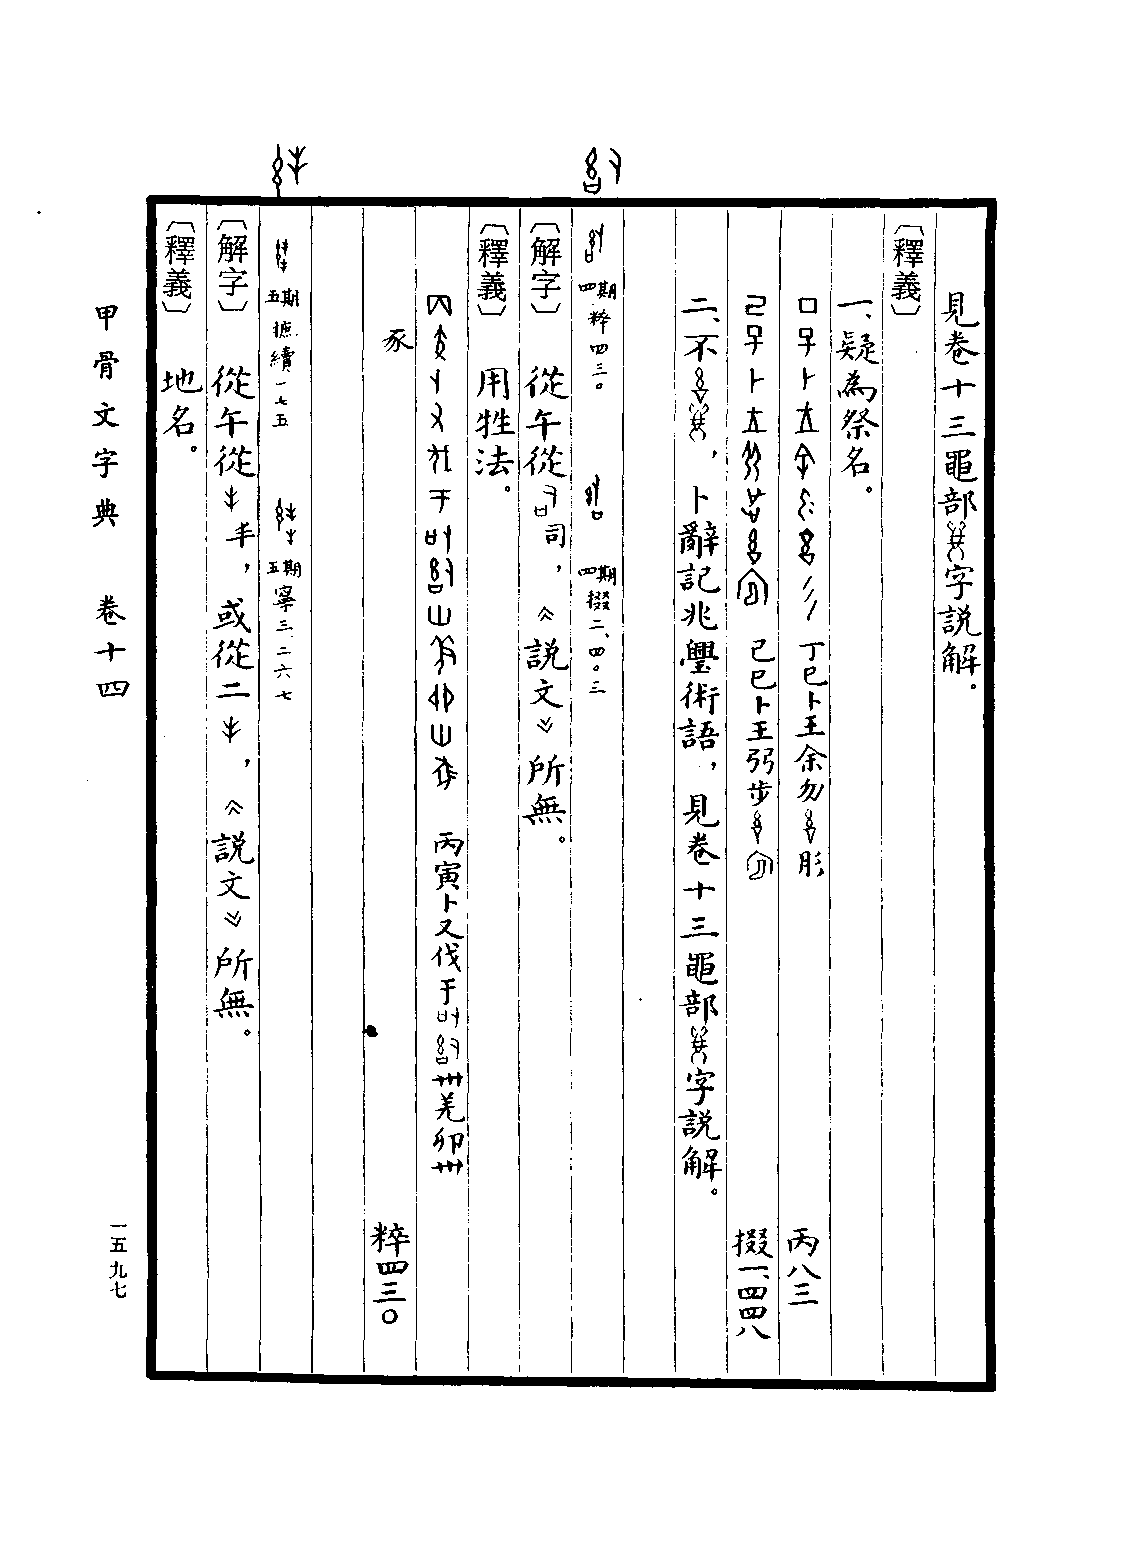 見卷十三黽部字説解。
〔釋義〕
一、疑為祭名。
丁巳卜王余勿彤 丙八三
己巳卜王弜步 掇一、四四八
二、不，卜辭記兆璺術語，見卷十三黽部字説解。
四期粹四三〇 四期掇二、四〇三
〔解字〕 從午從司，《説文》所無。
〔釋義〕 用牲法。
丙寅卜又伐于卅羌卯卅
豕 粹四三〇
五期摭續一七五 五期寧三、二六七
〔解字〕 從午從丰，或從二，《説文》所無。
〔釋義〕 地名。
甲骨文字典 卷十四
一五九七